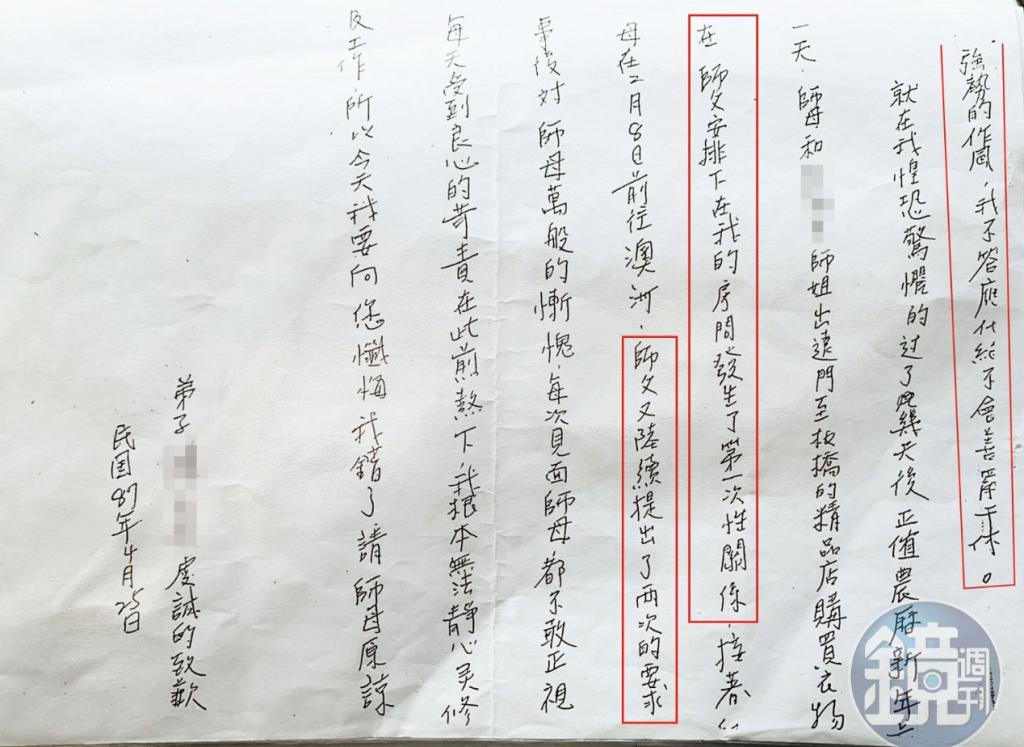 強勢的作風,我不答應他絕不會善罷干休。
就在我惶恐驚懼的过了幾天後 正值農厝新年
一天,師母和 師姐出遠門至板橋的精品店購買衣物
在 師父安排下在我的房間發生了第一次性關係,接着
母在二月8日前往澳洲,師父又陸續提出了兩次的要求
事後对 師母萬般的慚愧,每次見面師母都不敢正視
每天受到良心的苛責在此煎熬下,我根本無法静心灵修
及工作,所以今天我要向您懺悔我錯了請師母原諒
弟子 虔誠的致歉
民国87年4月25日
鏡週刊